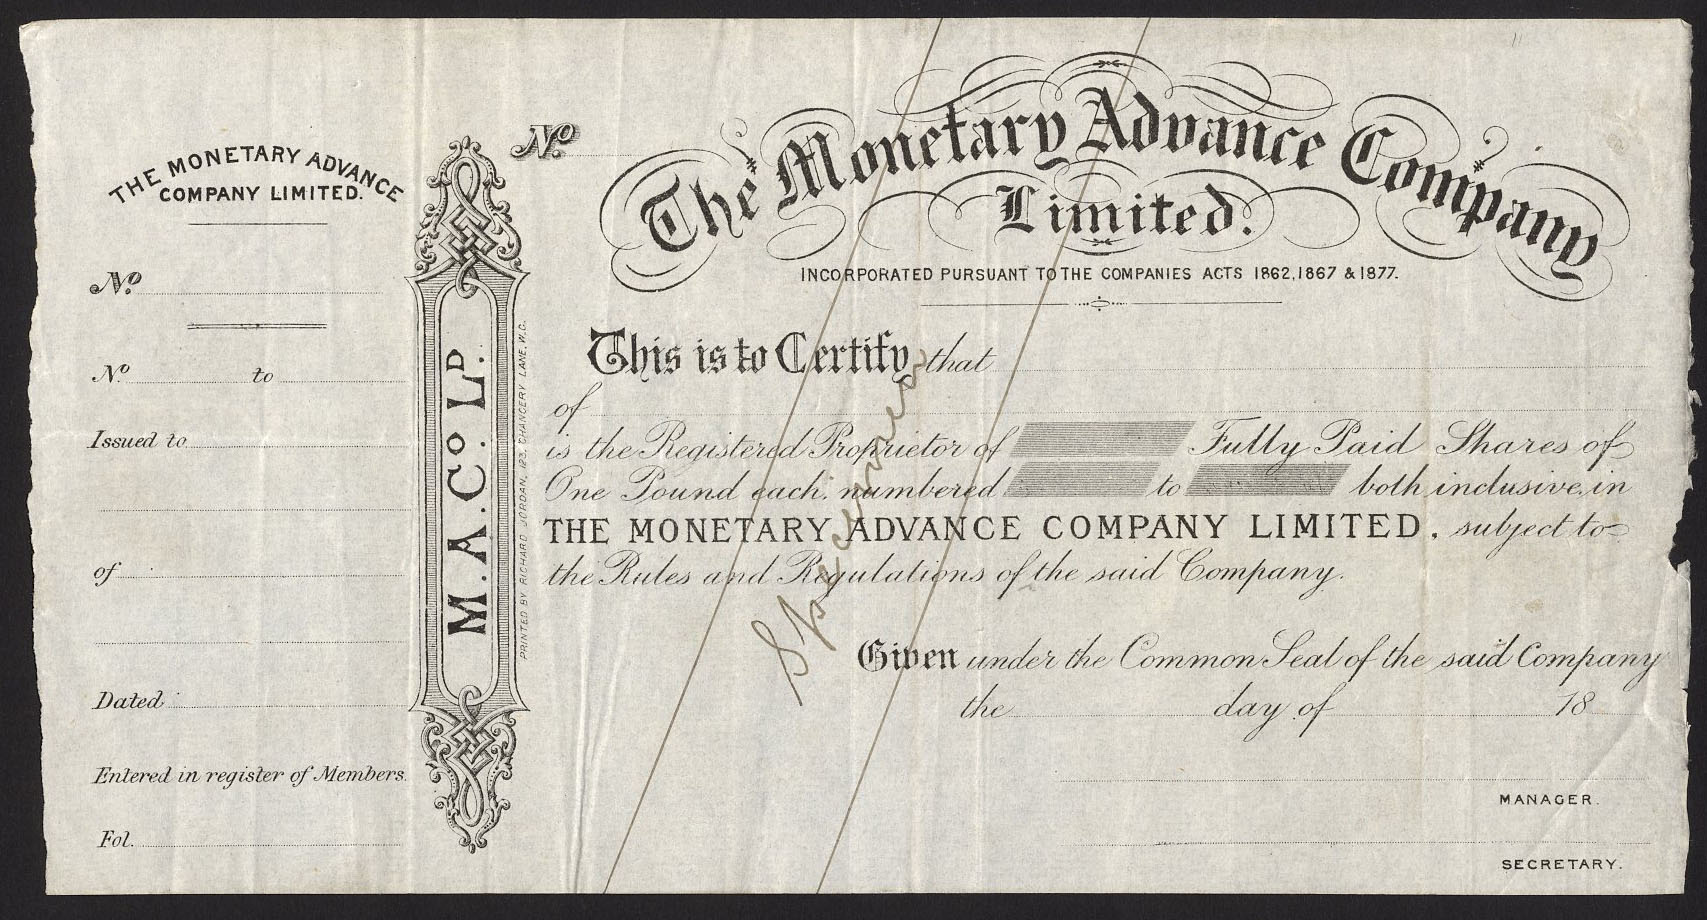 THE MONETARY ADVANCE
COMPANY LIMITED.
No.
No. to
Issued to
of
Dated
Entered in register of Members.
Fol.
M.A.Co. LD.
PRINTED BY RICHARD JORDAN, 123, CHANCERY LANE, W.C.
No.
The Monetary Advance Company
Limited.
INCORPORATED PURSUANT TO THE COMPANIES ACTS 1862, 1867 & 1877.
This is to Certify that
of
is the Registered Proprietor of Fully Paid Shares of
One Pound each, numbered to both inclusive, in
THE MONETARY ADVANCE COMPANY LIMITED, subject to
the Rules and Regulations of the said Company.
Specimen
Given under the Common Seal of the said Company
the day of 18
MANAGER.
SECRETARY.